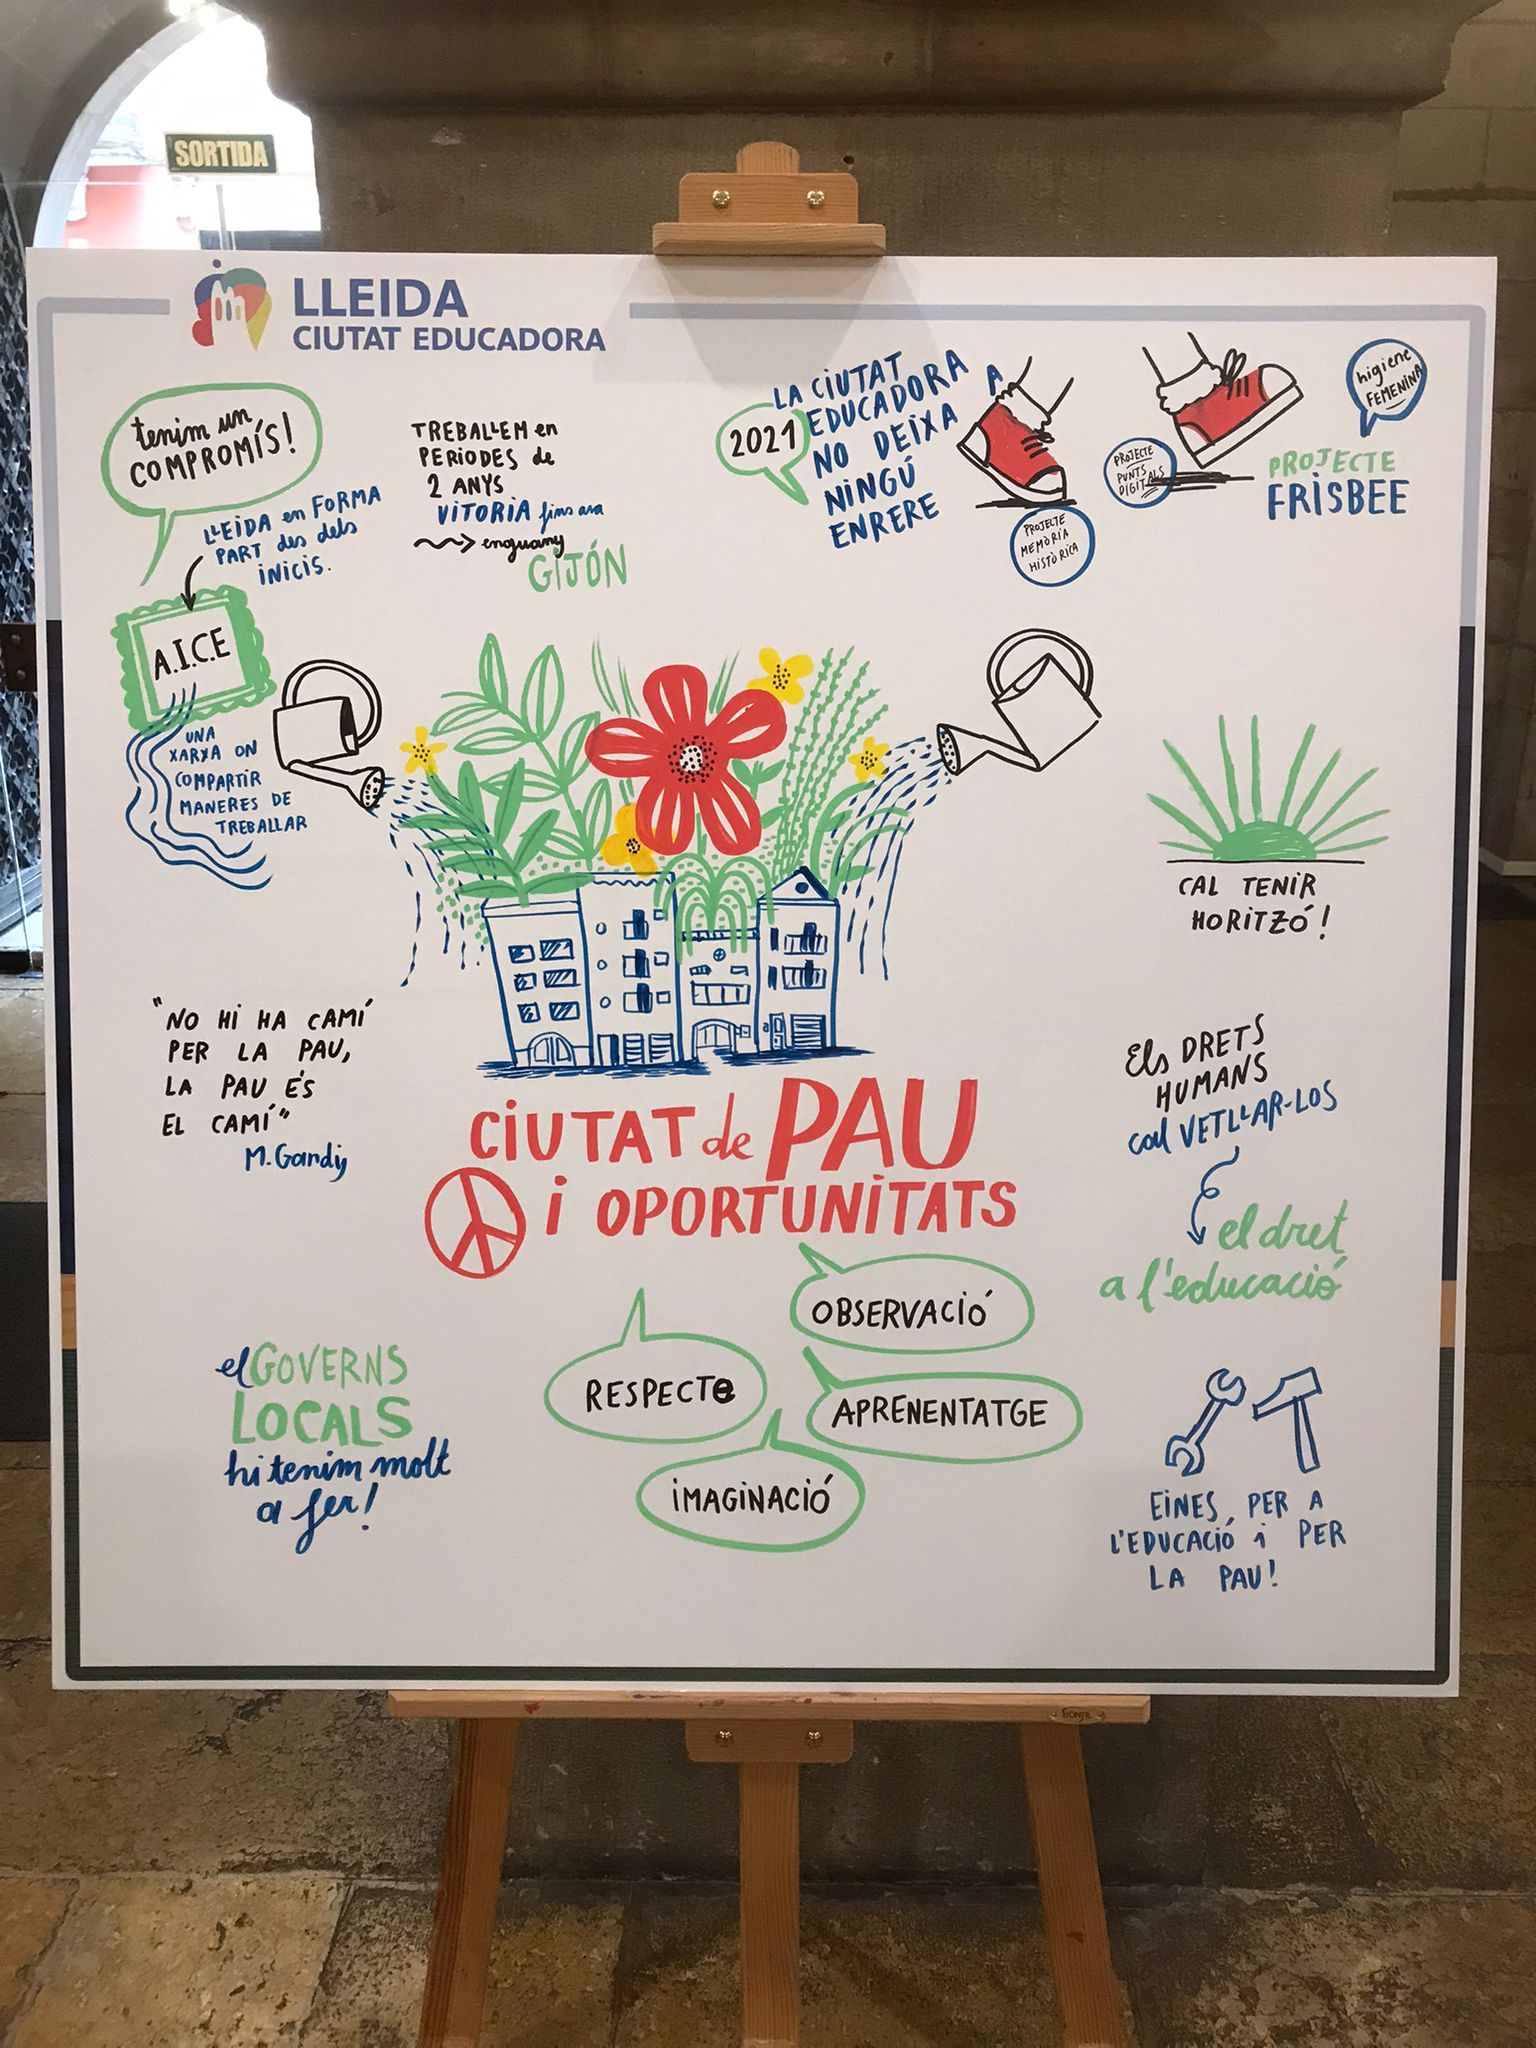 SORTIDA
LLEIDA
CIUTAT EDUCADORA
tenim un
COMPROMÍS!
LLEIDA en FORMA
PART des dels
iNiCiS.
A.I.C.E
UNA
XARXA ON
COMPARTIR
MANERES DE
TREBALLAR
TREBALLEM en
PERIODES de
2 ANYS
VITORIA fins ara
enguany
GIJÓN
2021
LA CIUTAT
EDUCADORA
NO DEIXA A
NINGÚ
ENRERE
PROJECTE
MEMÒRIA
HISTÒRICA
PROJECTE
PUNTS
DIGITALS
higiene
FEMENINA
PROJECTE
FRISBEE
CAL TENIR
HORITZÓ!
"NO HI HA CAMÍ
PER LA PAU,
LA PAU ÉS
EL CAMÍ"
M. Gandiy
CIUTAT de PAU
i OPORTUNITATS
Els DRETS
HUMANS
cal VETLLAR-LOS
el dret
a l'educació
OBSERVACIÓ
RESPECTe
APRENENTATGE
IMAGINACIÓ
el GOVERNS
LOCALS
hi tenim molt
a fer!
EINES, PER A
L'EDUCACIÓ i PER
LA PAU!